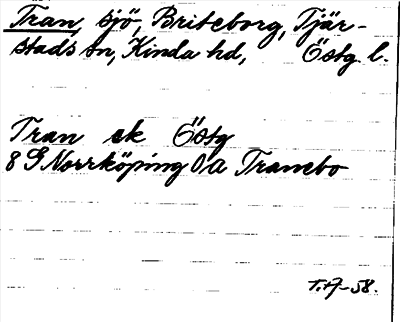 Tran, sjö, Briteborg, Tjär-
stads sn, Kinda hd, Östg. l.
Tran ek Östg
8 G Norrköping Öa Tranebo
T. 17-58.